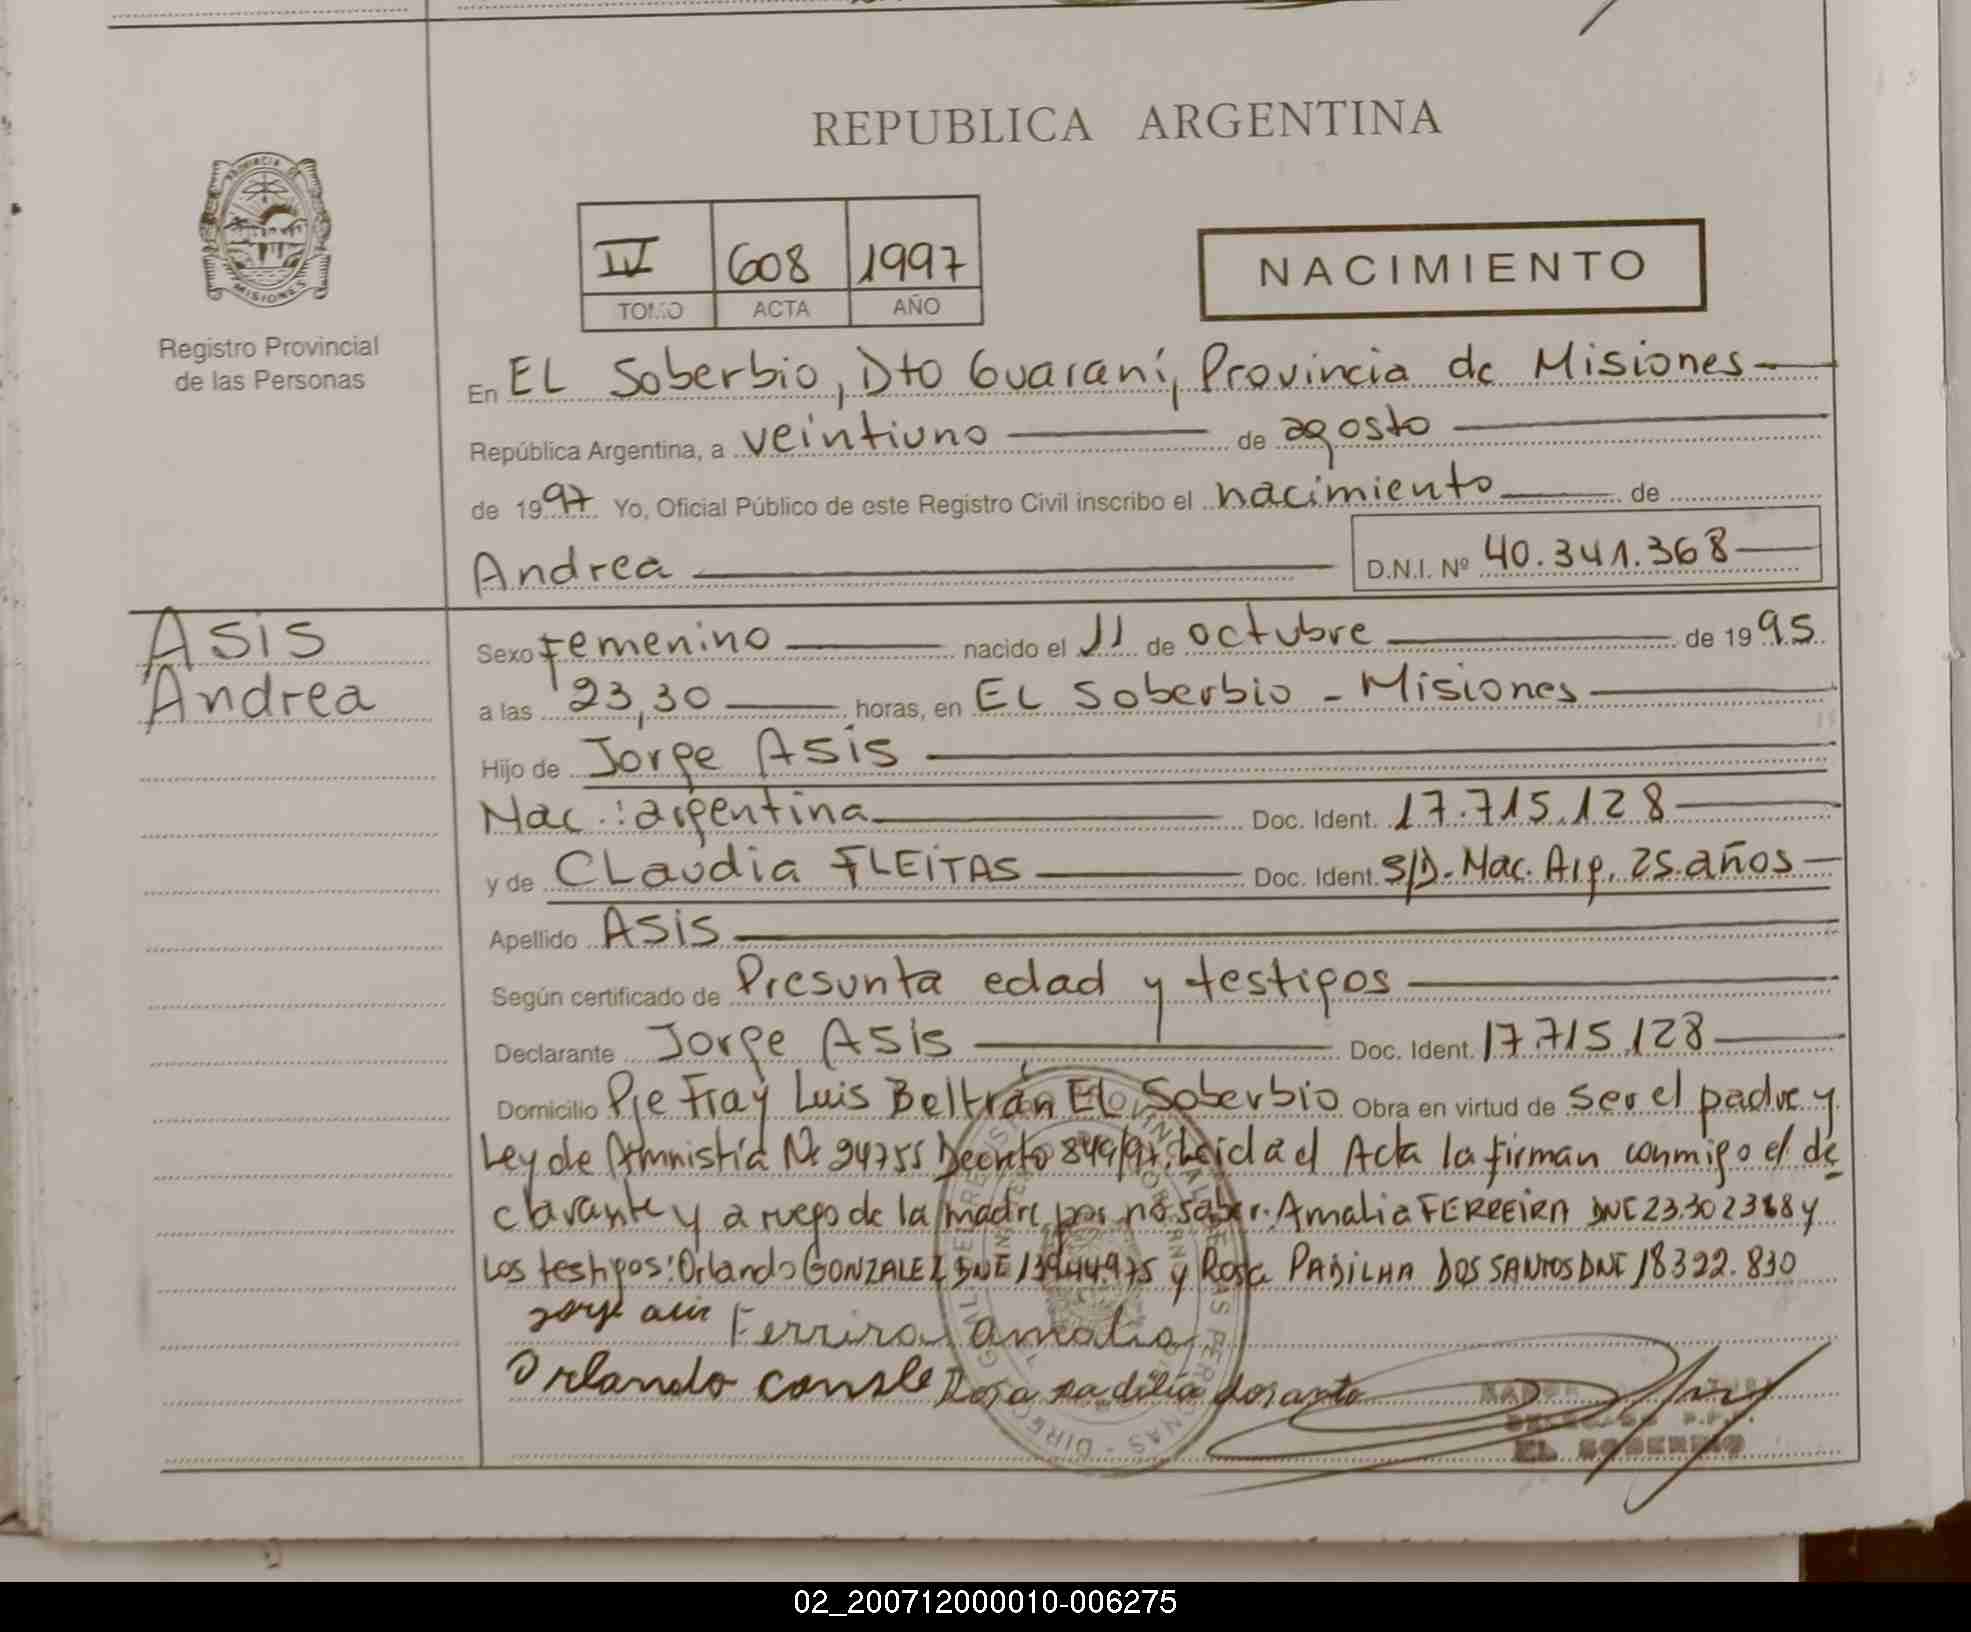 REPUBLICA ARGENTINA
PROVINCIA DE
MISIONES
Registro Provincial
de las Personas
IV 608 1997
TOMO ACTA AÑO
NACIMIENTO
En EL Soberbio, Dto Guaraní, Provincia de Misiones
República Argentina, a veintiuno de agosto
de 1997 Yo, Oficial Público de este Registro Civil inscribo el nacimiento de
Andrea D.N.I. Nº 40.341.368
Asis
Andrea
Sexo Femenino nacido el 11 de octubre de 1995
a las 23,30 horas, en EL Soberbio - Misiones
Hijo de Jorge Asis
Nac.: argentina Doc. Ident. 17.715.128
y de CLaudia FLEITAS Doc. Ident. S/D. Nac. Arg. 25 años
Apellido Asis
Según certificado de Presunta edad y testigos
Declarante Jorge Asis Doc. Ident. 17.715.128
Domicilio Pje Fray Luis Beltrán EL Soberbio Obra en virtud de ser el padre y
Ley de Amnistía Nº 24755 Decreto 849/97. Leida el Acta la firman conmigo el de
clarante y a ruego de la madre por no saber. Amalia FERREIRA DNI 23.302388 y
Los testigos: Orlando GONZALEZ DNI 13944.975 y Rosa PADILHA DOS SANTOS DNI 18322.830
Jorge asis Ferrira amalia
Orlando consle Rosa padilia dosanto
EL SOBERBIO
02_200712000010-006275